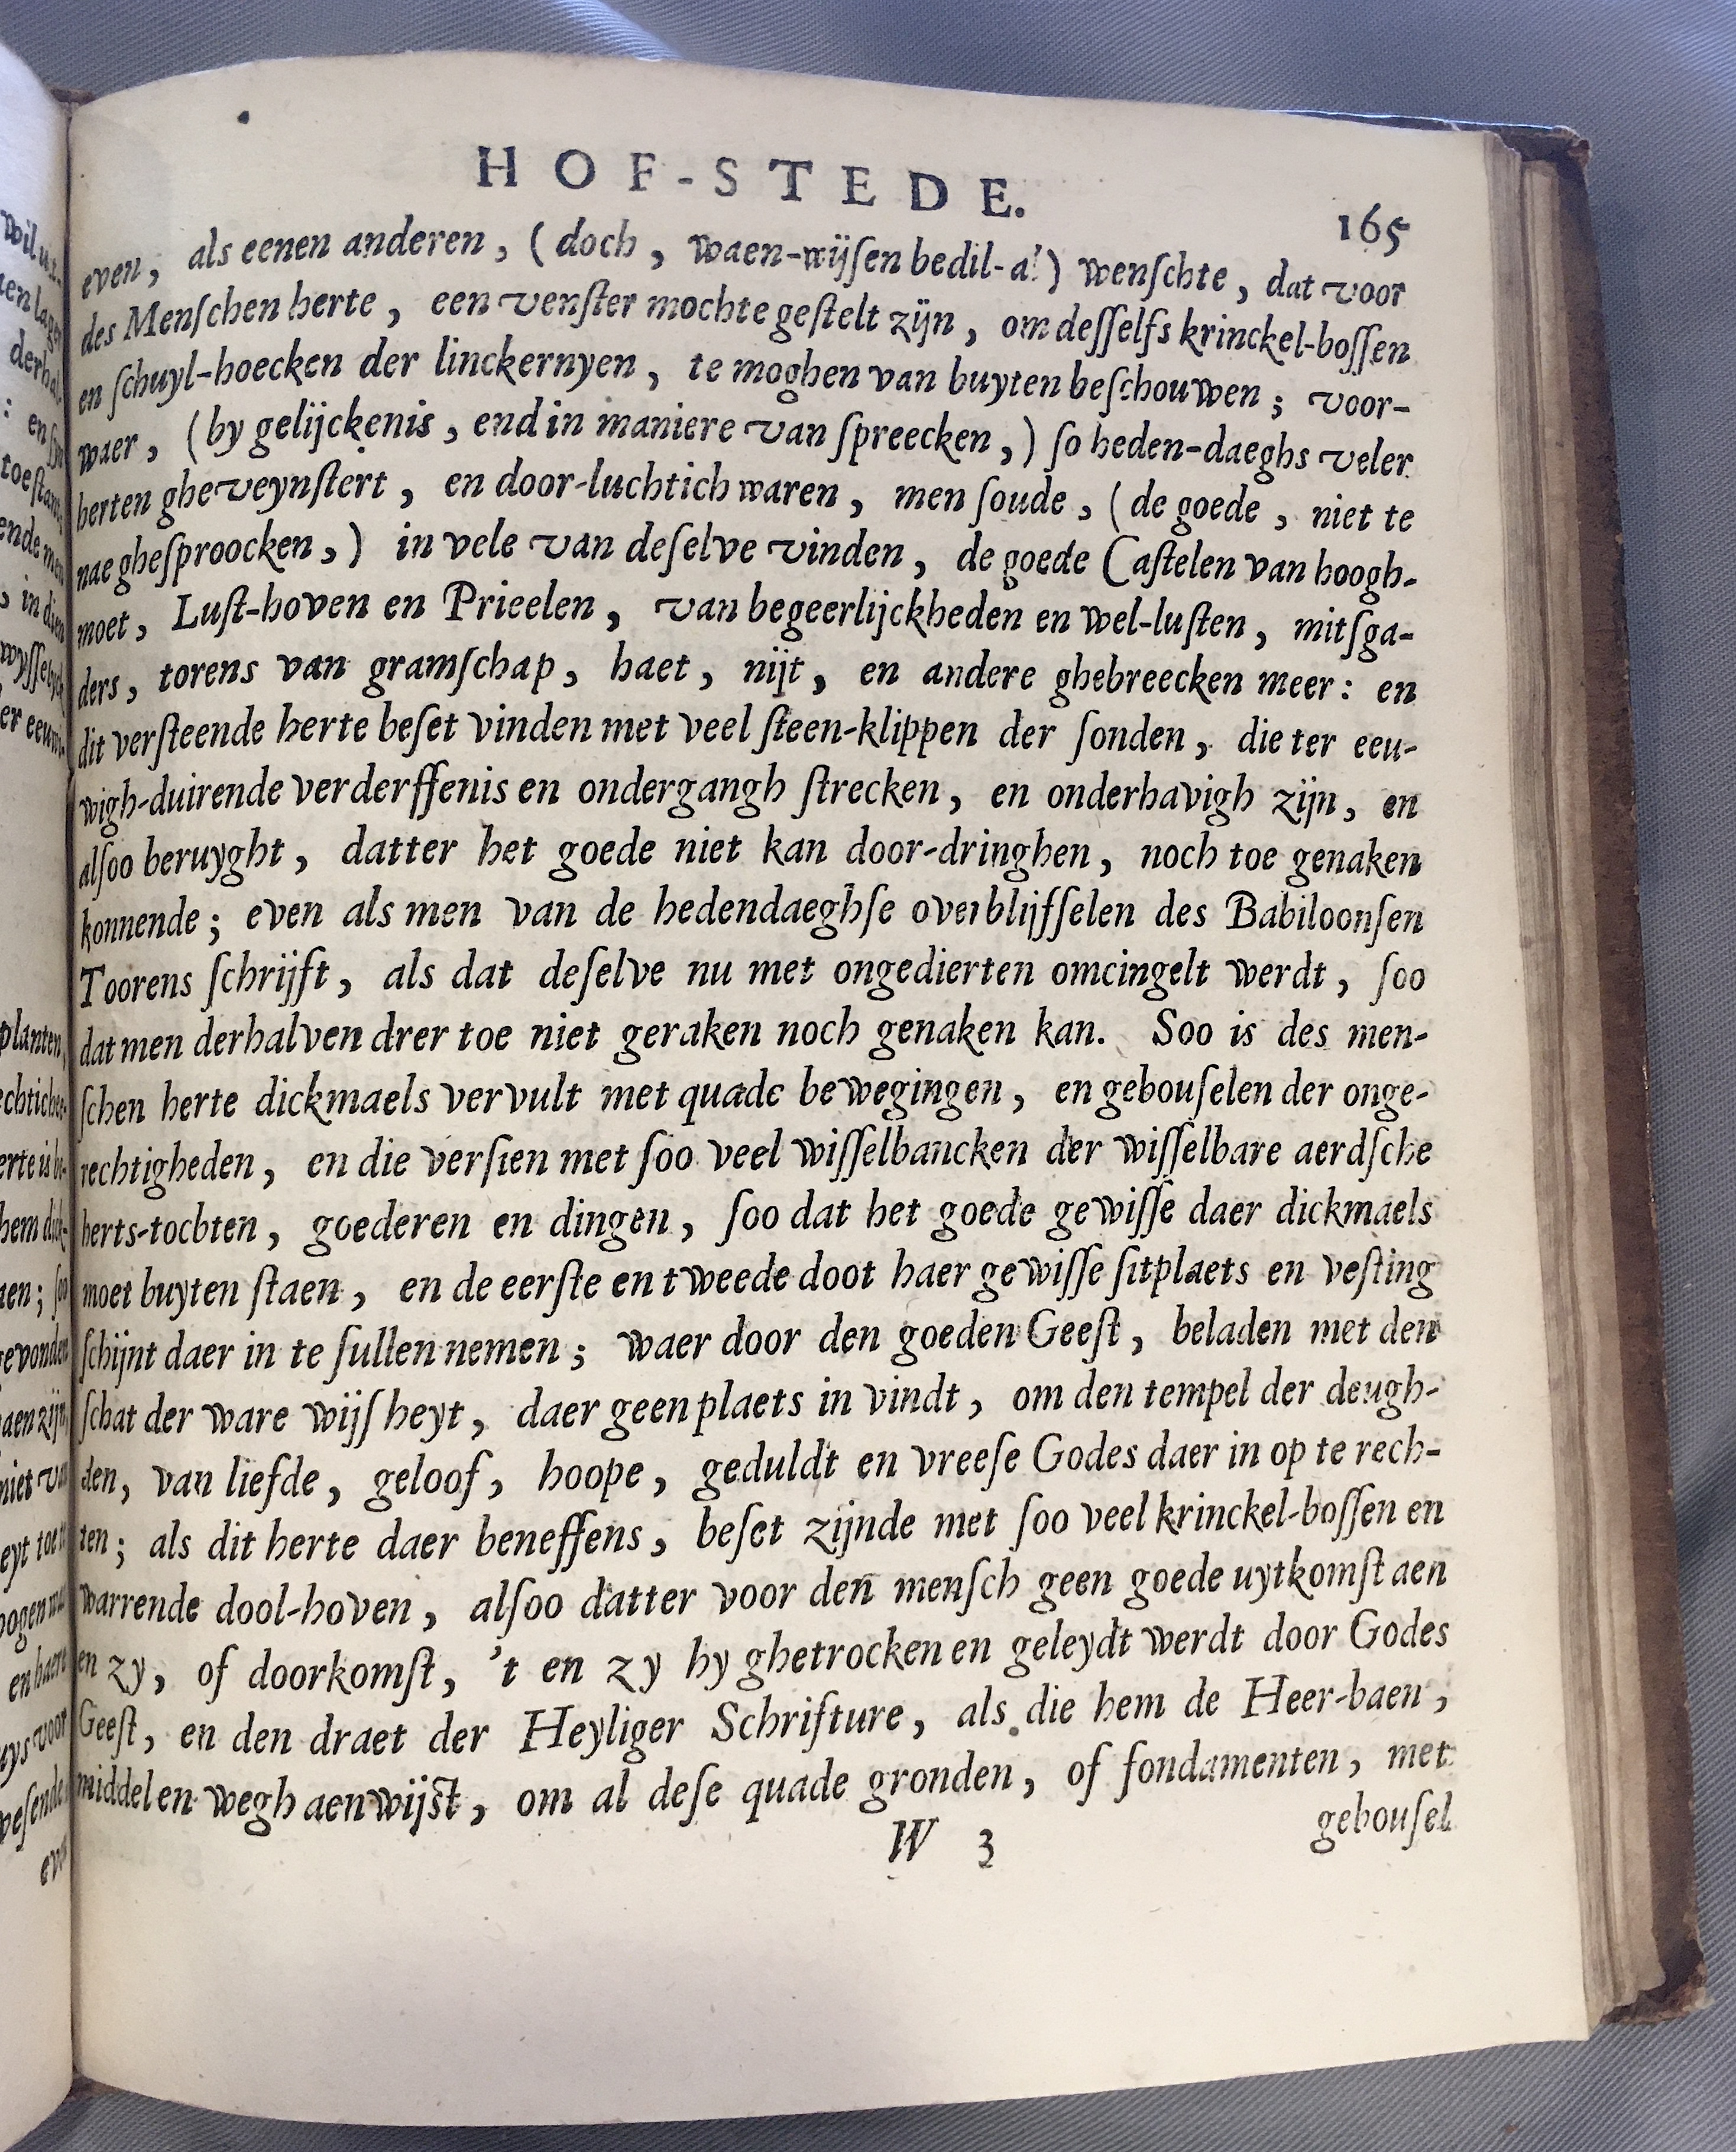 HOF-STEDE.
165
even, als eenen anderen, (doch, waen-wijſen bedil-al) wenſchte, dat voor
des Menſchen herte, een venſter mochte geſtelt zijn, om deſſelfs krinckel-boſſen
en ſchuyl-hoecken der linckernyen, te moghen van buyten beſchouwen; voor-
waer, (by gelijckenis, end in maniere van ſpreecken,) ſo heden-daeghs veler
herten gheveynſtert, en door-luchtich waren, men ſoude, (de goede, niet te
nae gheſproocken,) in vele van deſelve vinden, de goede Caſtelen van hoogh-
moet, Luſt-hoven en Prieelen, van begeerlijckheden en wel-luſten, mitſga-
ders, torens van gramſchap, haet, nijt, en andere ghebreecken meer: en
dit verſteende herte beſet vinden met veel ſteen-klippen der ſonden, die ter eeu-
wigh-duirende verderffenis en ondergangh ſtrecken, en onderhavigh zijn, en
alſoo beruyght, datter het goede niet kan door-dringhen, noch toe genaken
konnende; even als men van de hedendaeghſe overblijfſelen des Babiloonſen
Toorens ſchrijft, als dat deſelve nu met ongedierten omcingelt werdt, ſoo
dat men derhalven drer toe niet geraken noch genaken kan. Soo is des men-
ſchen herte dickmaels vervult met quade bewegingen, en gebouſelen der onge-
rechtigheden, en die verſien met ſoo veel wiſſelbancken der wiſſelbare aerdſche
herts-tochten, goederen en dingen, ſoo dat het goede gewiſſe daer dickmaels
moet buyten ſtaen, en de eerſte en tweede doot haer gewiſſe ſitplaets en veſting
ſchijnt daer in te ſullen nemen; waer door den goeden Geeſt, beladen met den
ſchat der ware wijſheyt, daer geen plaets in vindt, om den tempel der deugh-
den, van liefde, geloof, hoope, geduldt en vreeſe Godes daer in op te rech-
ten; als dit herte daer beneffens, beſet zijnde met ſoo veel krinckel-boſſen en
warrende dool-hoven, alſoo datter voor den menſch geen goede uytkomſt aen
en zy, of doorkomſt, 't en zy hy ghetrocken en geleydt werdt door Godes
Geeſt, en den draet der Heyliger Schrifture, als die hem de Heer-baen,
middel en wegh aenwijſt, om al deſe quade gronden, of fondamenten, met
W 3
gebouſel